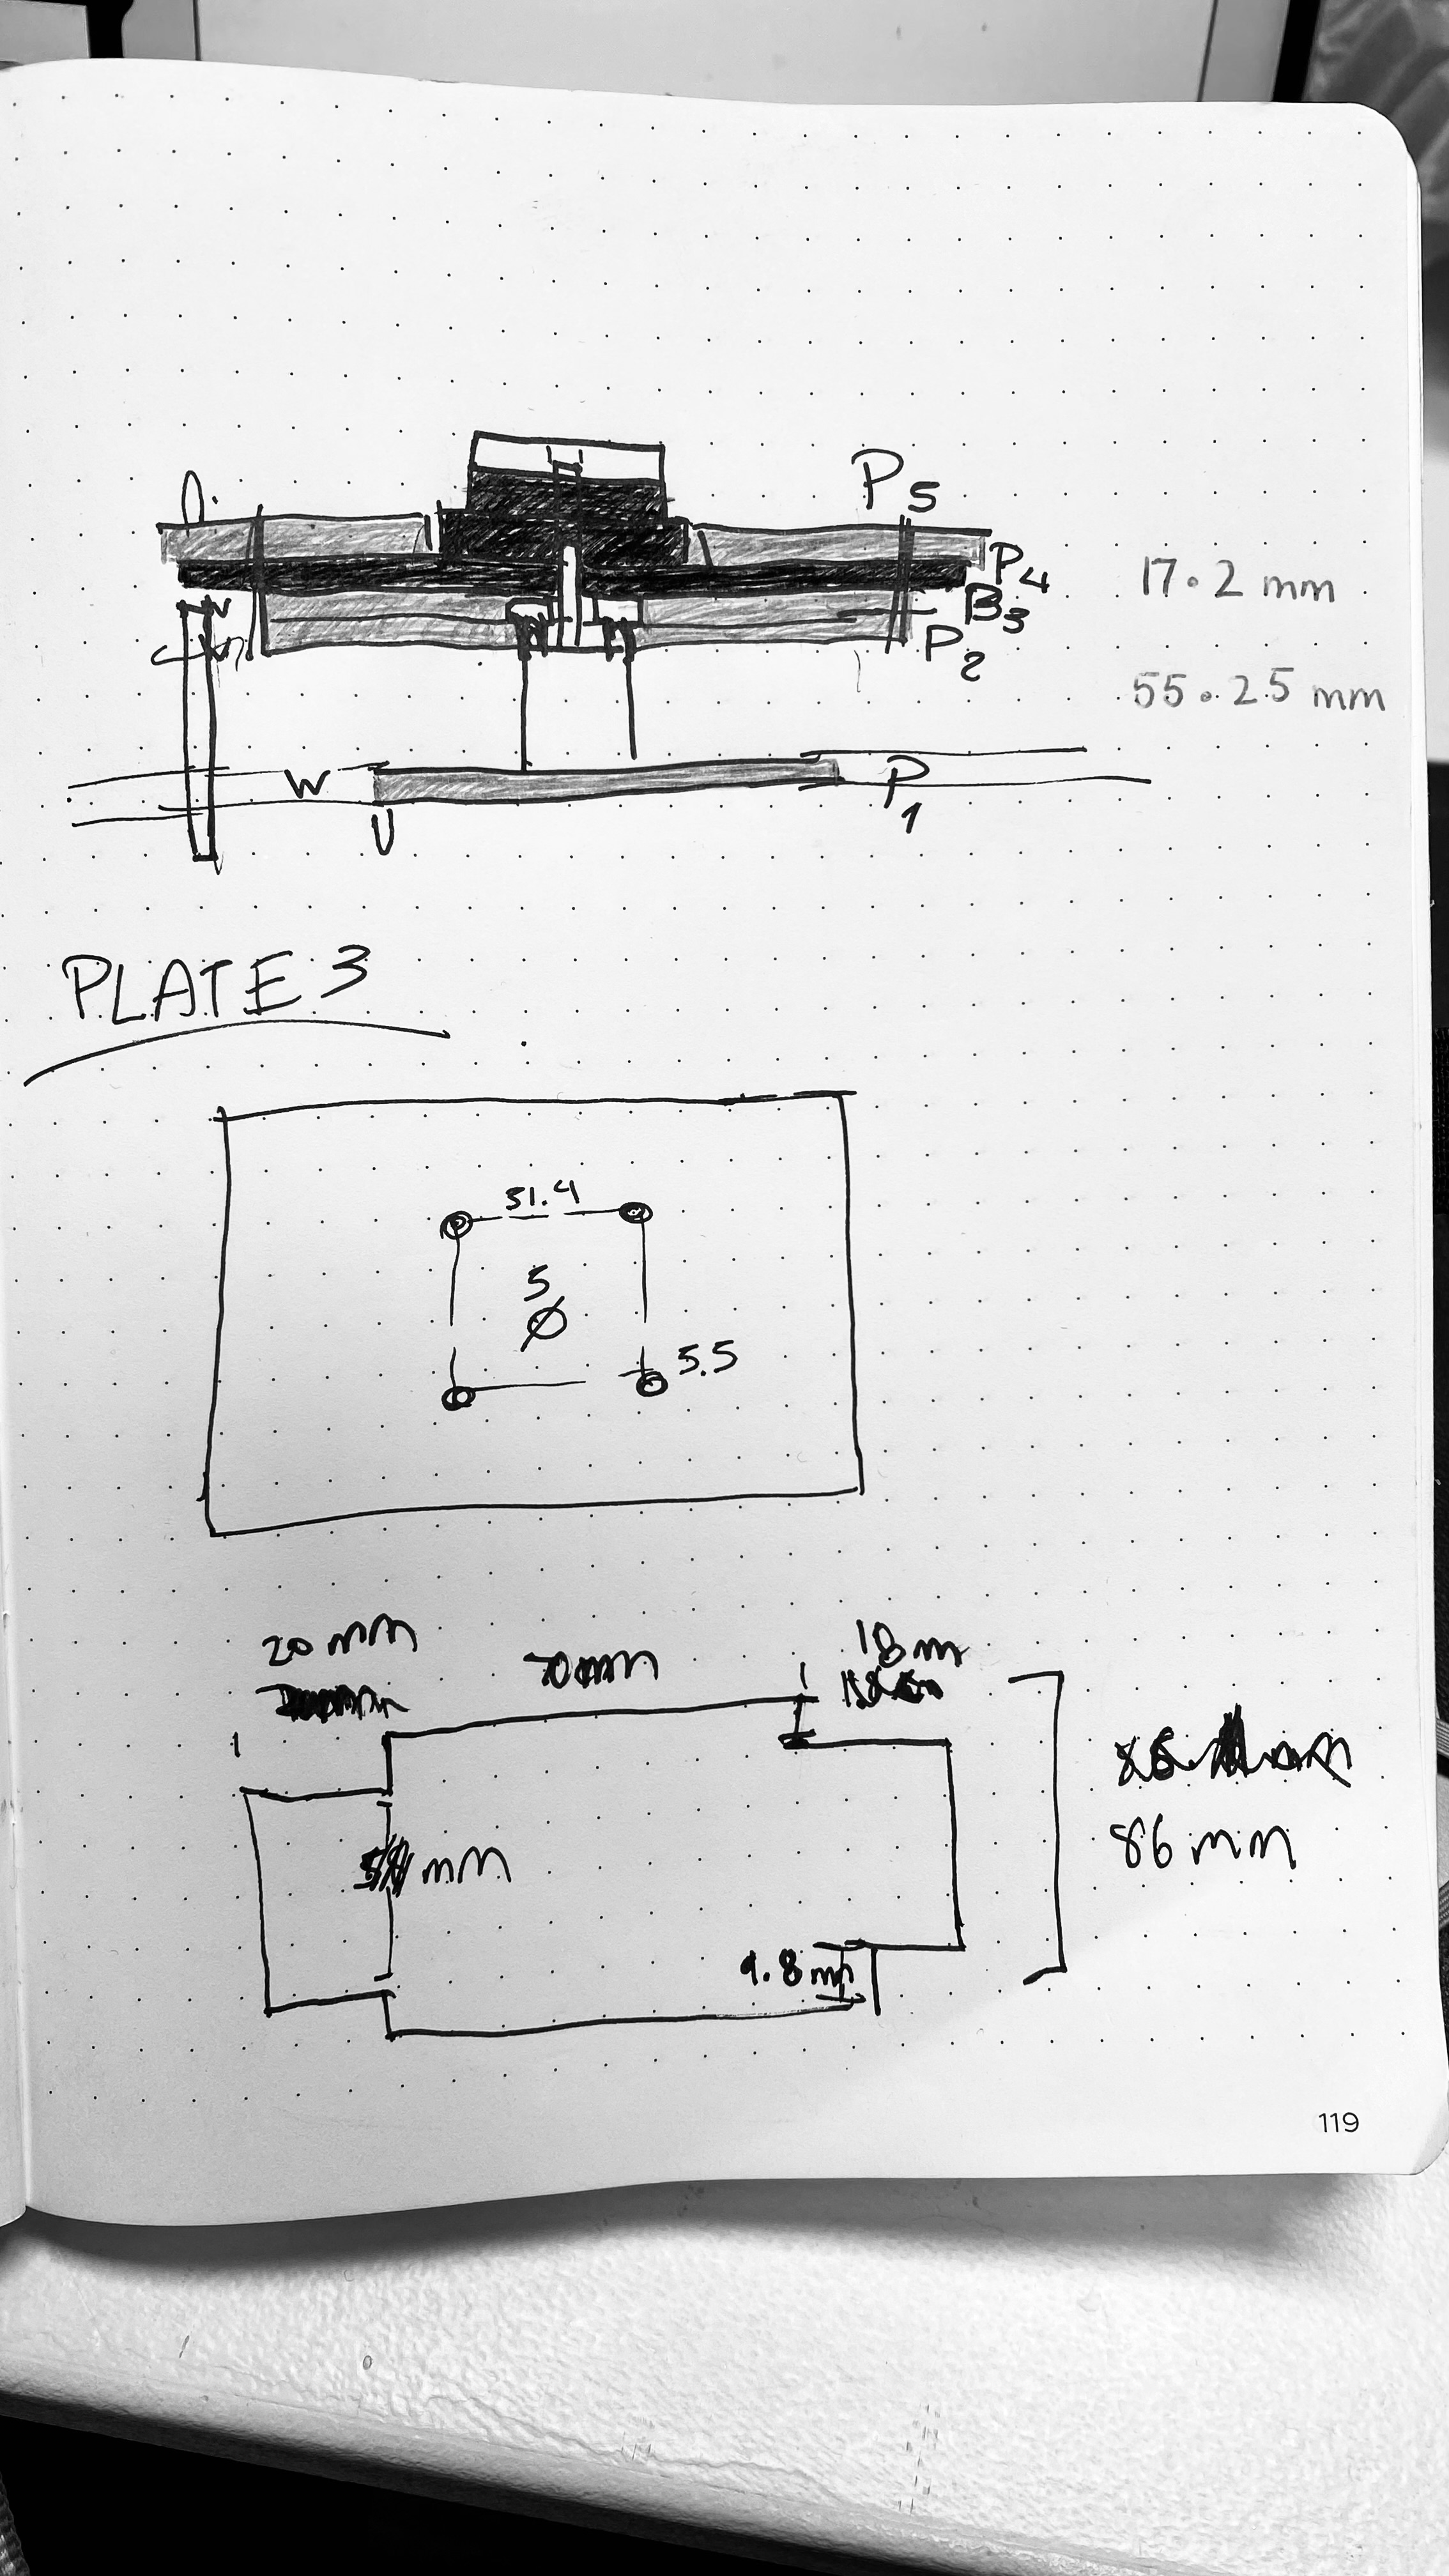 P5
P4
B3
P2
17.2 mm
55.25 mm
W
P1
U
PLATE 3
51.4
5
Ø
5.5
20 mm
70mm
18m
mm
86 mm
9.8 mm
119